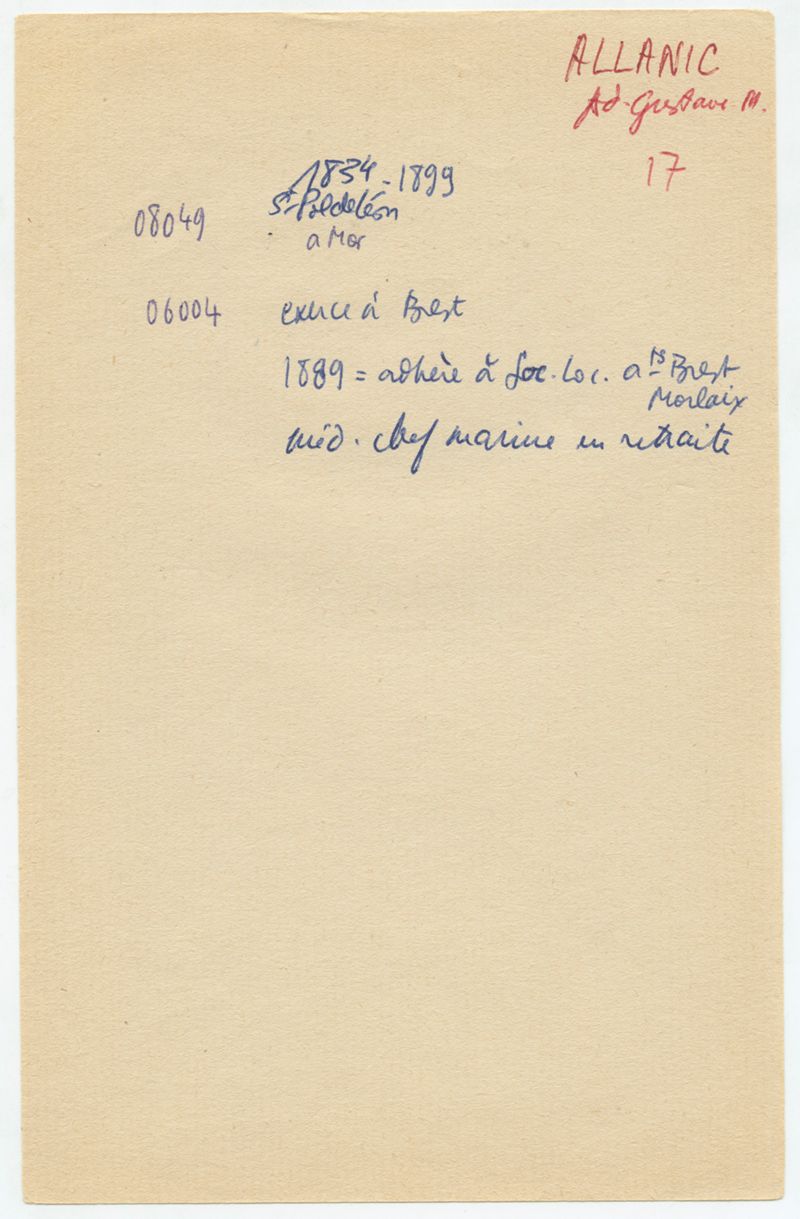 ALLANIC
Ad. Gustave M.
17
1834 - 1899
08049 St Pol de Léon
a Mor
06004 exerce à Brest
1889 = adhère à Soc. Loc. a rs Brest
Morlaix
méd. chef marine en retraite